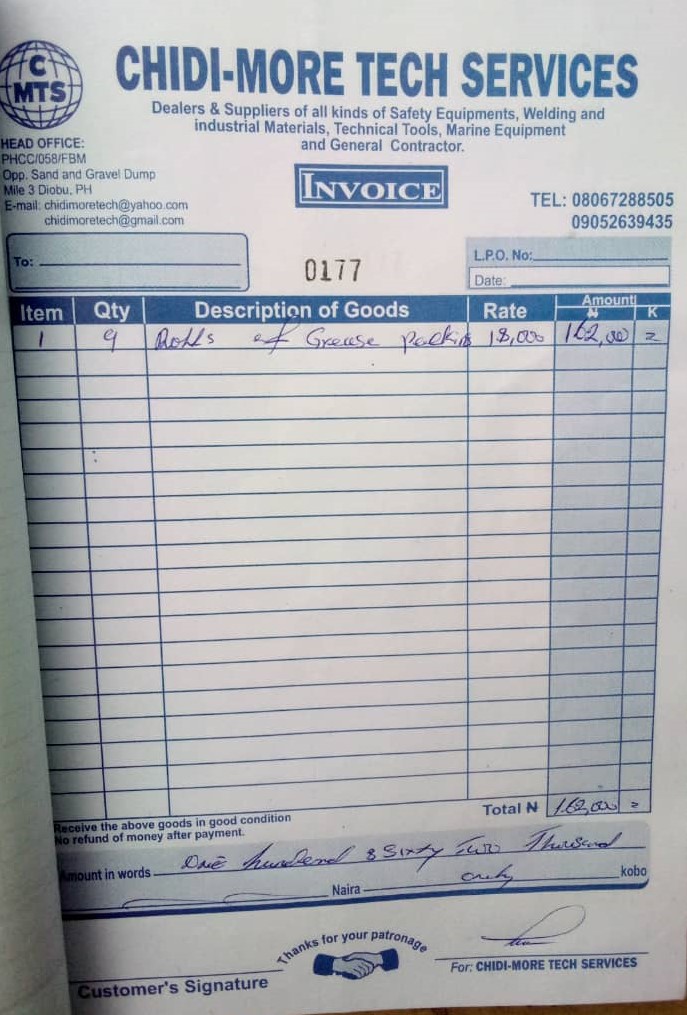 C
MTS
CHIDI-MORE TECH SERVICES
Dealers & Suppliers of all kinds of Safety Equipments, Welding and
industrial Materials, Technical Tools, Marine Equipment
and General Contractor.
HEAD OFFICE:
PHCC/058/FBM
Opp. Sand and Gravel Dump
Mile 3 Diobu, PH
E-mail: chidimoretech@yahoo.com
chidimoretech@gmail.com
INVOICE
TEL: 08067288505
09052639435
To:
0177
L.P.O. No:
Date:
Item Qty Description of Goods Rate Amount ₦ K
1 9 Rolls of Grease packing 18,000 162,000 =
Total ₦ 162,000 =
Receive the above goods in good condition
No refund of money after payment.
Amount in words One hundred & Sixty Two Thousand
Naira only kobo
Thanks for your patronage
Customer's Signature
For: CHIDI-MORE TECH SERVICES